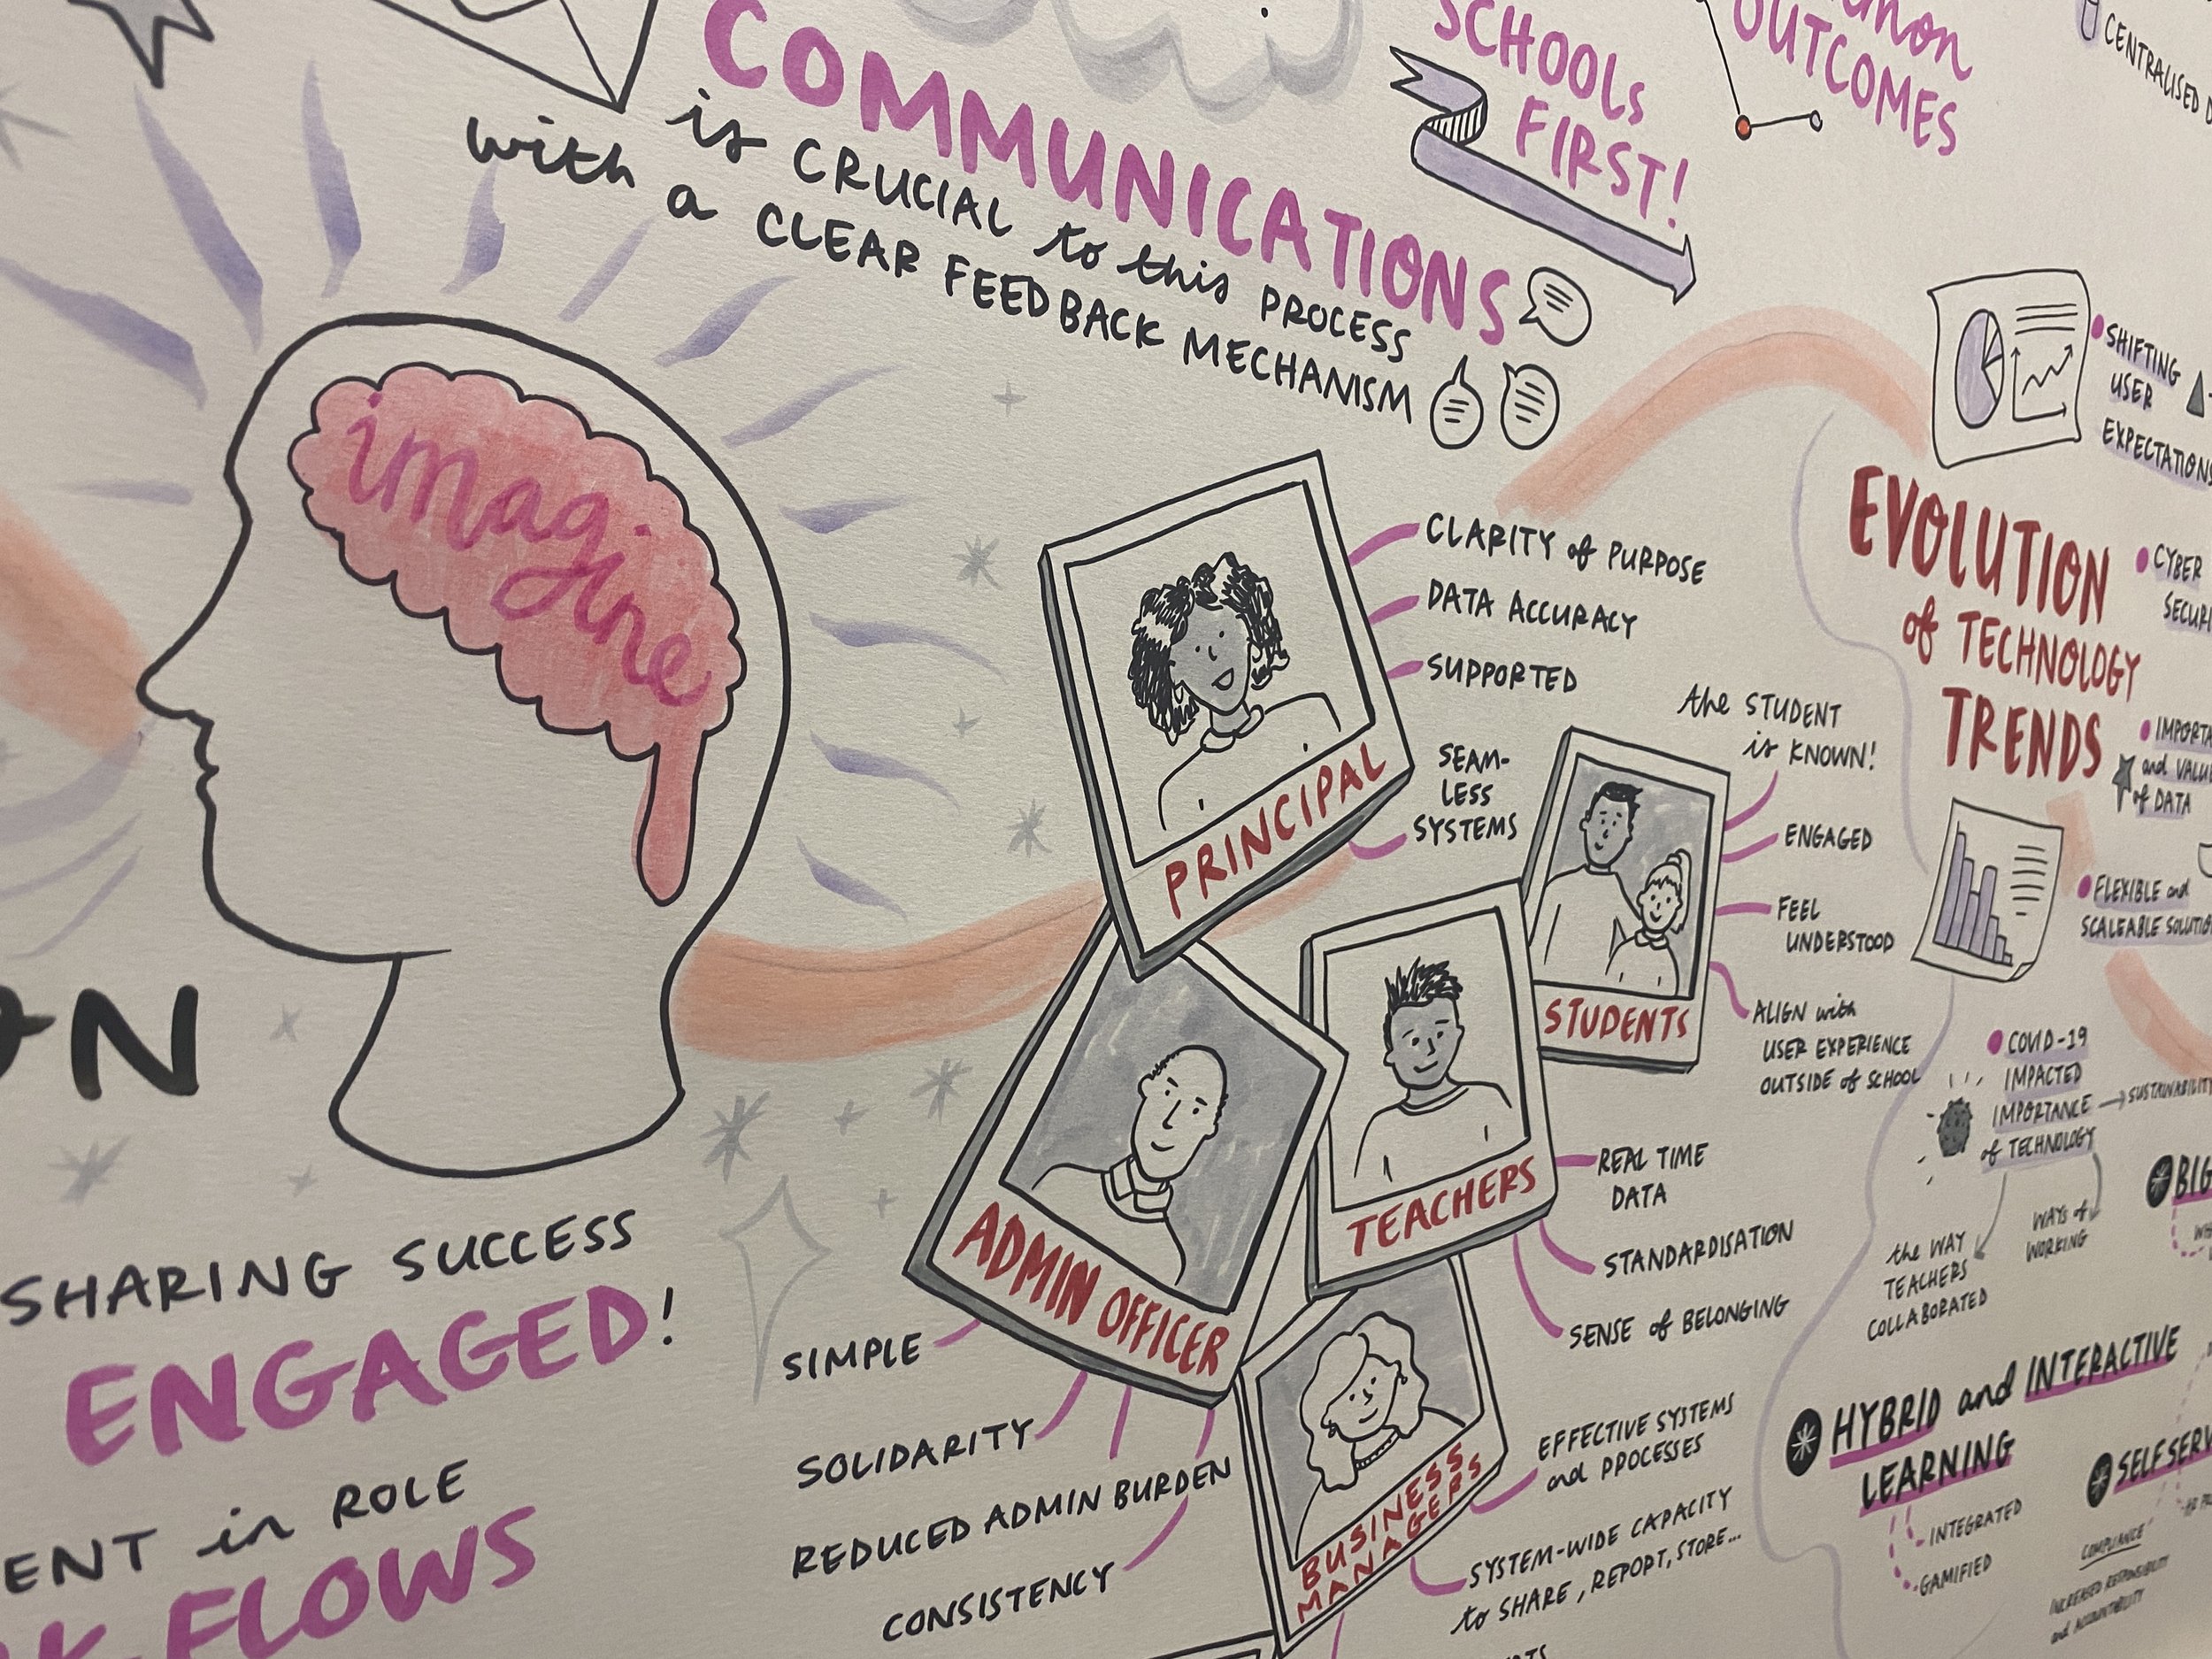 COMMUNICATIONS
is CRUCIAL to this PROCESS
with a CLEAR FEEDBACK MECHANISM
SCHOOLS
FIRST!
OUTCOMES
CENTRALISED
imagine
SHARING SUCCESS
ENGAGED!
in ROLE
FLOWS
PRINCIPAL
CLARITY of PURPOSE
DATA ACCURACY
SUPPORTED
SEAM-
LESS
SYSTEMS
STUDENTS
the STUDENT
is KNOWN!
ENGAGED
FEEL
UNDERSTOOD
ALIGN with
USER EXPERIENCE
OUTSIDE of SCHOOL
ADMIN OFFICER
SIMPLE
SOLIDARITY
REDUCED ADMIN BURDEN
CONSISTENCY
TEACHERS
REAL TIME
DATA
STANDARDISATION
SENSE of BELONGING
BUSINESS
MANAGERS
EFFECTIVE SYSTEMS
and PROCESSES
SYSTEM-WIDE CAPACITY
to SHARE, REPORT, STORE...
EVOLUTION
of TECHNOLOGY
TRENDS
SHIFTING
USER
EXPECTATIONS
CYBER
and VALUE
of DATA
FLEXIBLE and
SCALEABLE
COVID-19
IMPACTED
IMPORTANCE
of TECHNOLOGY
SUSTAINABILITY
the WAY
TEACHERS
COLLABORATED
WAYS of
WORKING
BIG
HYBRID and INTERACTIVE
LEARNING
INTEGRATED
GAMIFIED
SELF
COMPLIANCE
INCREASED RESPONSIBILITY
and ACCOUNTABILITY